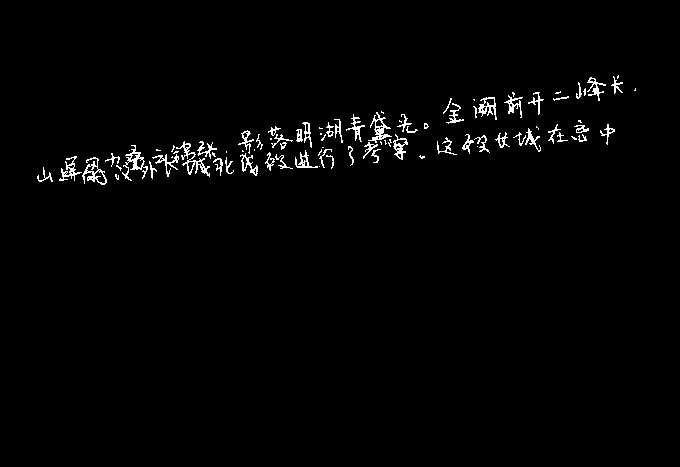 屏风九叠云锦张,影落明湖青黛光。金阙前开二峰长,
山 外长城北 段进行了考察。这段 城在 中